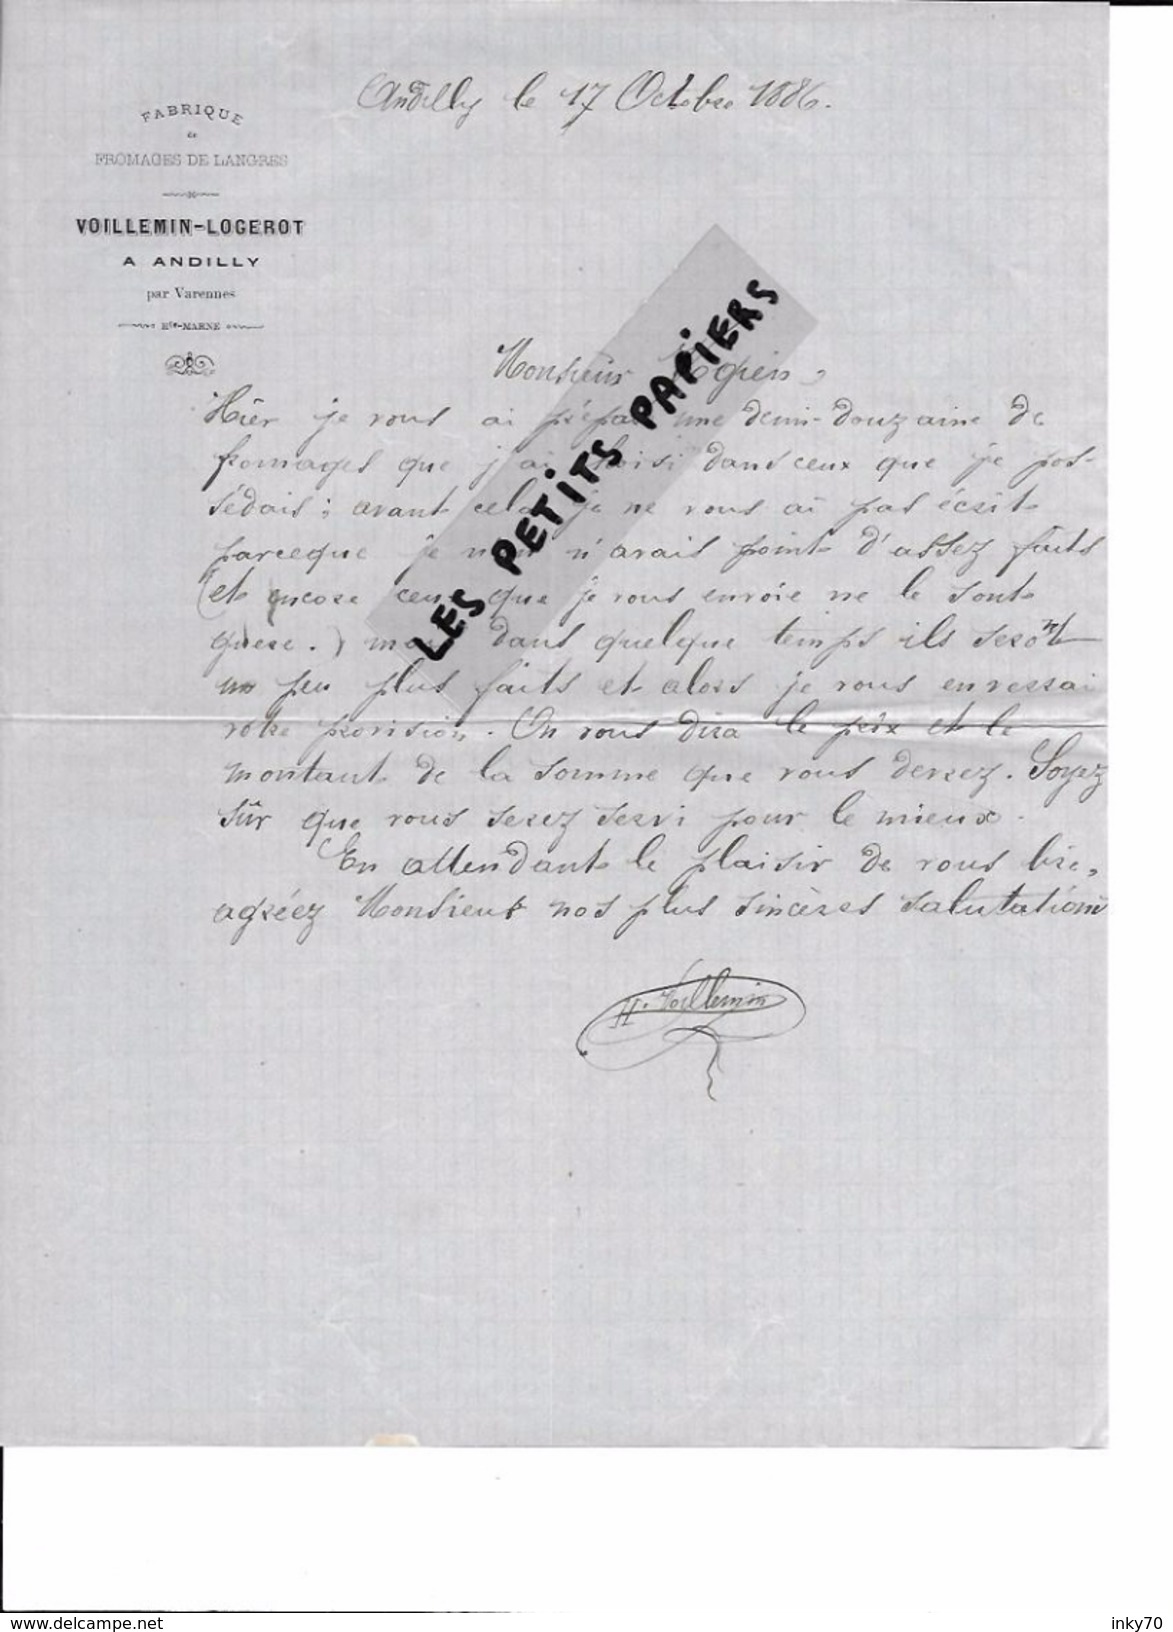 Andilly le 17 Octobre 1886.
FABRIQUE
de
FROMAGES DE LANGRES
VOILLEMIN-LOGEROT
A ANDILLY
par Varennes
Hte-MARNE
LES PETITS PAPIERS
Monsieur
Hier je vous ai une demi-douzaine de
fromages que j'ai choisi dans ceux que je pos-
sédais ; avant cela je ne vous ai pas écrit
parceque je n'avais point d'assez faits
(et encore ceux que je vous envoie ne le sont
guere.) mais dans quelque temps ils seront
un peu plus faits et alors je vous enverrai
votre provision. On vous dira le prix et le
montant de la somme que vous devrez. Soyez
sûr que vous serez servi pour le mieux.
En attendant le plaisir de vous lire,
agréez Monsieur nos plus sincères salutations
H. Voillemin
www.delcampe.net
inky70